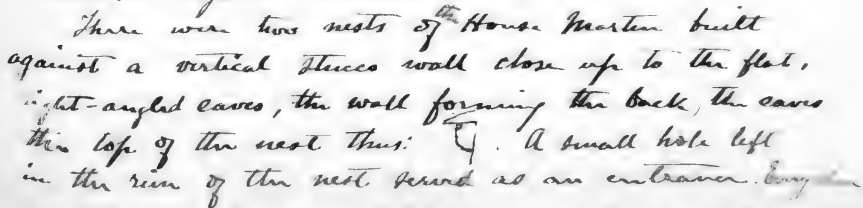 There were two nests of the House Martin built
against a vertical stucco wall close up to the flat,
right-angled eaves, the wall forming the back, the eaves
the top of the nest thus: . A small hole left
in the rim of the nest served as an entrance. Every